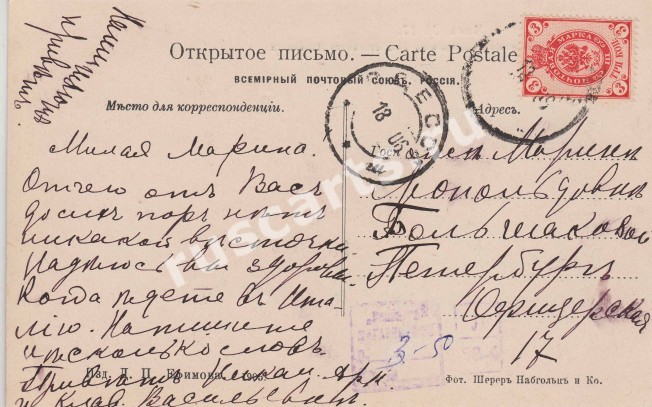 Открытое письмо. — Carte Postale
ВСЕМІРНЫЙ ПОЧТОВЫЙ СОЮЗЪ. РОССІЯ.
Мѣсто для корреспонденціи.
Адресъ.
3 3
ПОЧТОВАЯ МАРКА
3 3
ОДЕССА
18
Милая Марина.
Отчего отъ Васъ
до сихъ поръ нѣтъ
никакой вѣсточки
Надѣюсь вы здоровы.
Когда ѣдете въ Ита-
лію. Напишите
нѣсколько словъ
Привѣтъ
и Клав. Васильевнѣ.
Марины
Большаковой
Петербургъ
Офицерская
17
3-50
Изд. Д. П. Ефимова. 1905
Фот. Шереръ Набгольцъ и Ко.
ruscarts.su